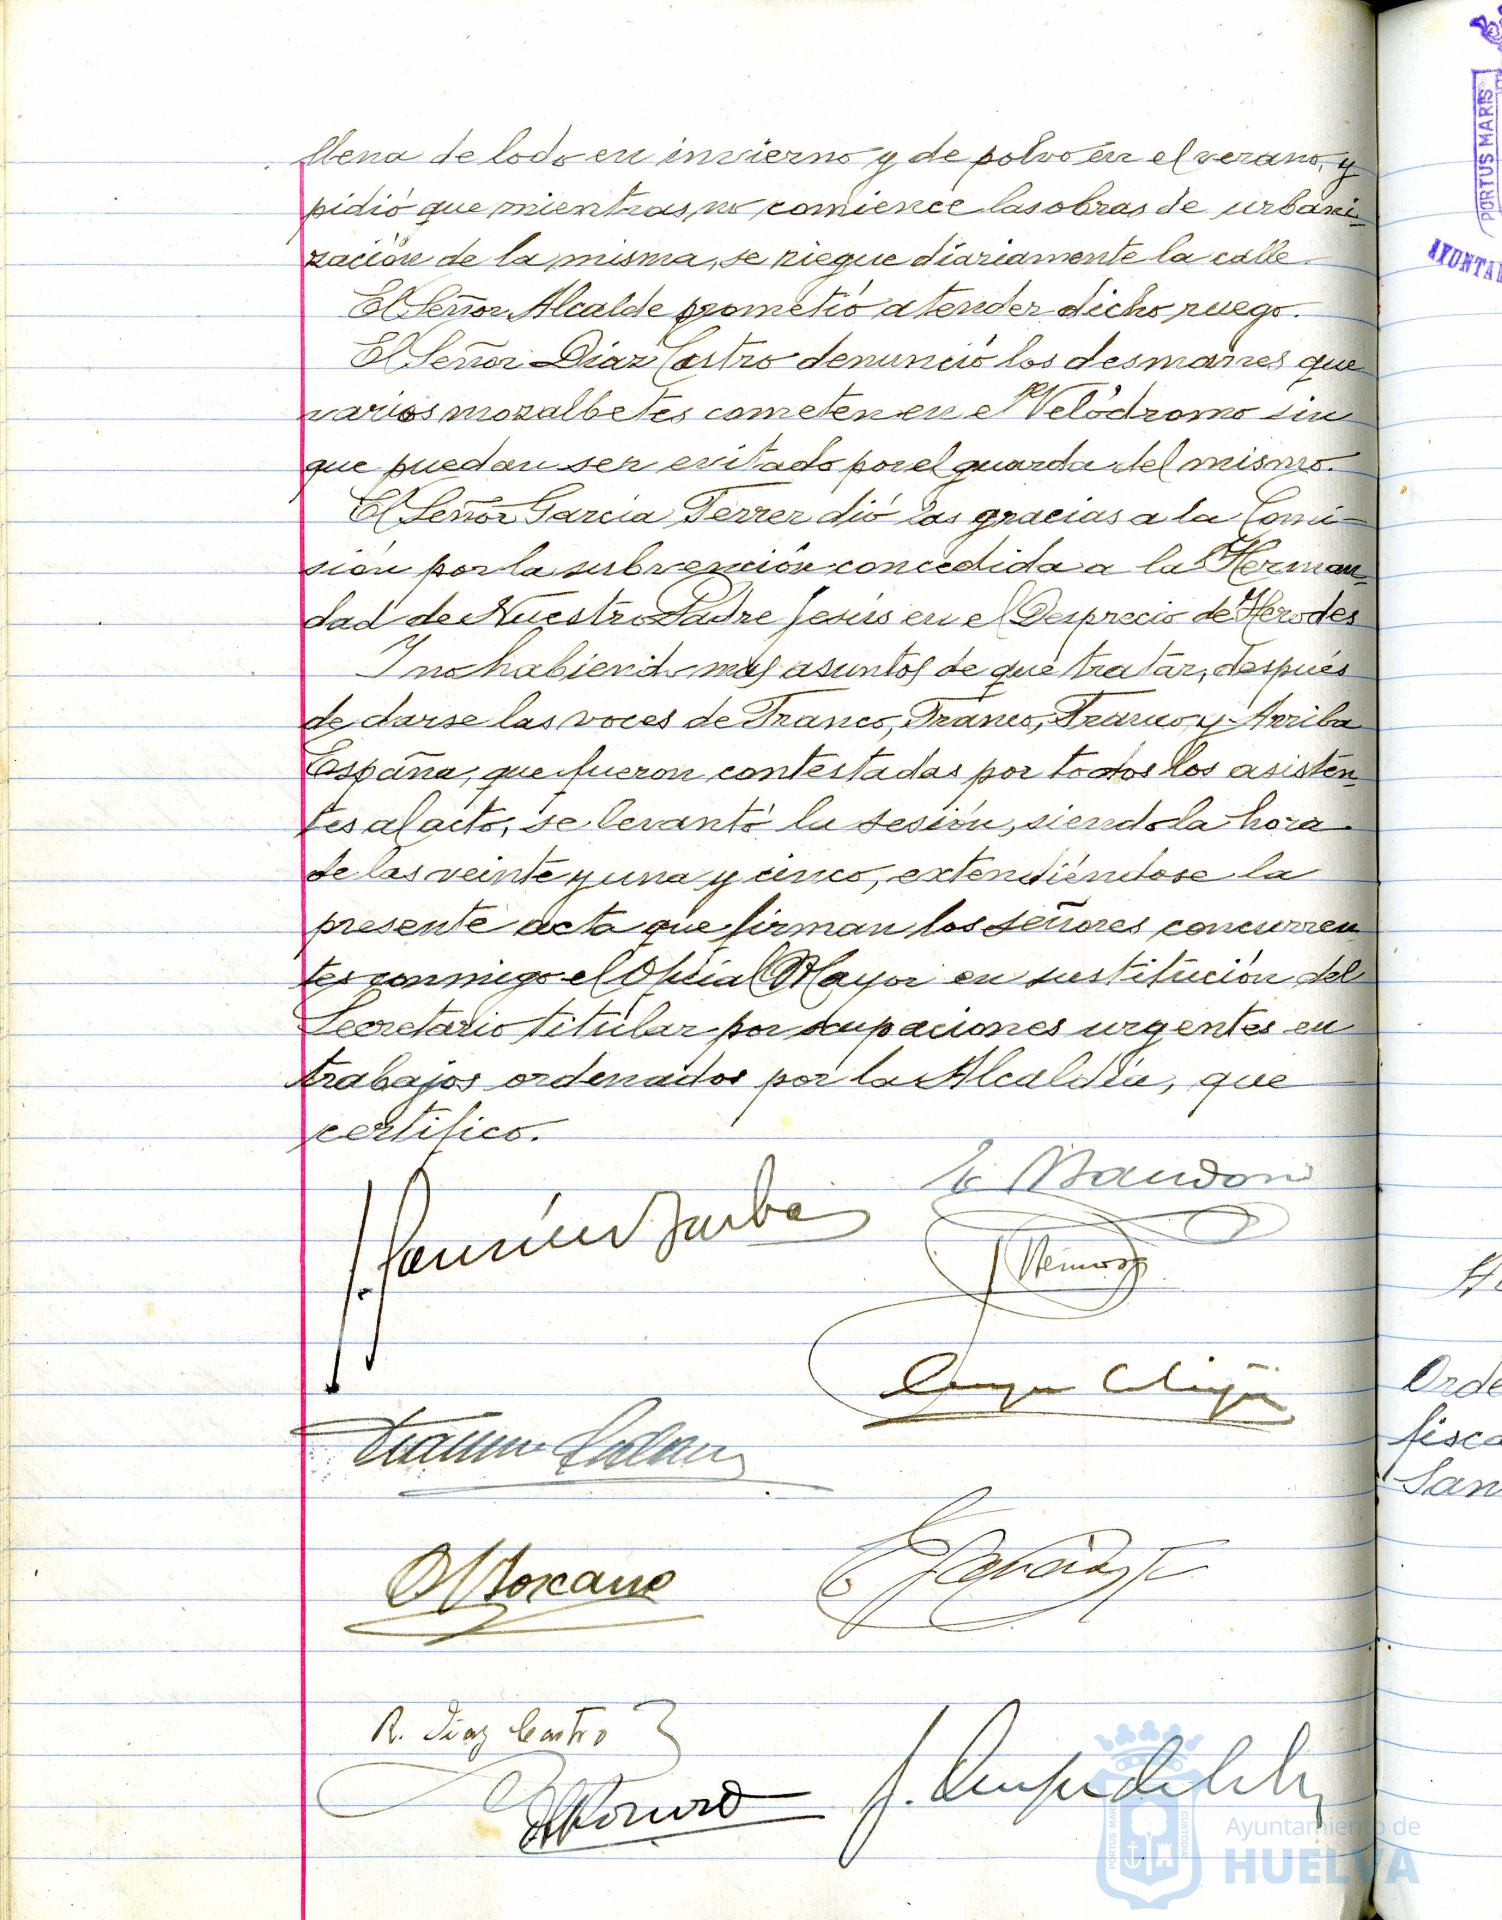 llena de lodo en invierno y de polvo en el verano, y
pidió que mientras no comience las obras de urbani-
zación de la misma, se riegue diariamente la calle.
El Señor Alcalde prometió atender dicho ruego.
El Señor Díaz Castro denunció los desmanes que
varios mozalbetes cometen en el Velódromo sin
que puedan ser evitado por el guarda del mismo.
El Señor García Ferrer dió las gracias a la Comi-
sión por la subvención concedida a la Herman-
dad de Nuestro Padre Jesús en el Desprecio de Herodes
Y no habiendo mas asuntos de que tratar, después
de darse las voces de Franco, Franco, Franco, y Arriba
España, que fueron contestadas por todos los asisten-
tes al acto, se levantó la sesión, siendo la hora
de las veinte y una y cinco, extendiéndose la
presente acta que firman los señores concurren-
tes conmigo el Oficial Mayor en sustitución del
Secretario titular por ocupaciones urgentes en
trabajos ordenados por la Alcaldía, que
certifico.
R. Díaz Castro
PORTUS MARIS
AYUNTA
Orde
fisca
San
PORTUS MARIS
CUSTODIA
Ayuntamiento de
HUELVA